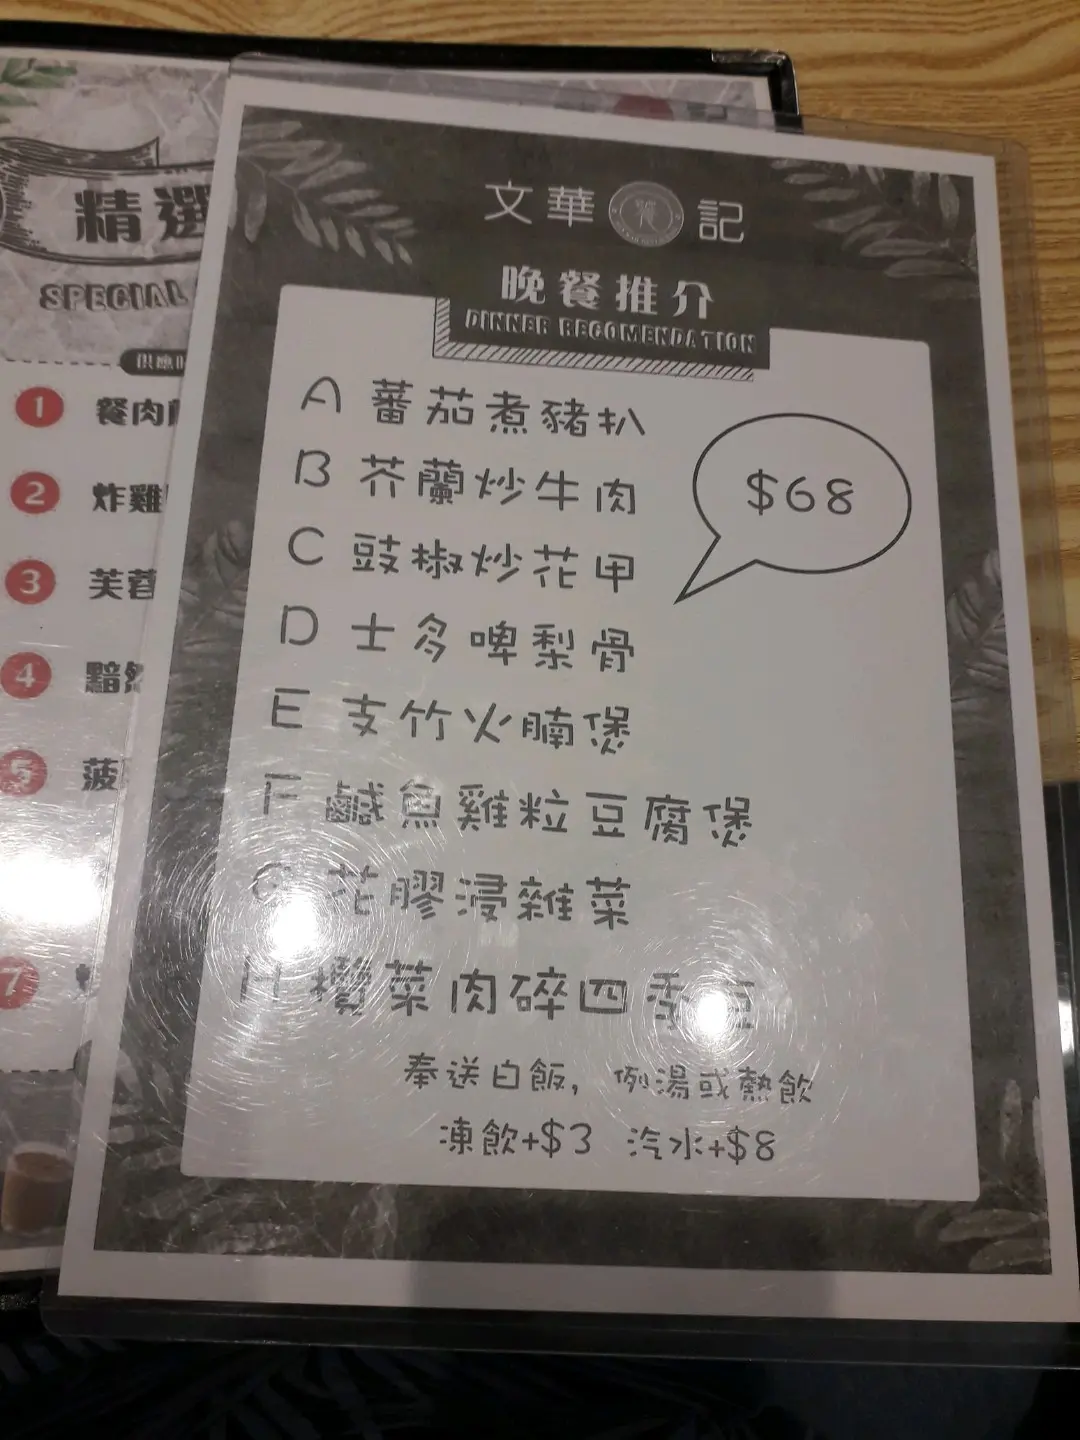 文華餐記
晚餐推介
DINNER RECOMENDATION
A 蕃茄煮豬扒
B 芥蘭炒牛肉
$68
C 豉椒炒花甲
D 士多啤梨骨
E 支竹火腩煲
F 鹹魚雞粒豆腐煲
G 花膠浸雜菜
H 欖菜肉碎四季豆
奉送白飯, 例湯或熱飲
凍飲+$3 汽水+$8
精選
SPECIAL
供應
1 餐肉
2 炸雞
3 芙蓉
4 黯然
5 菠
7